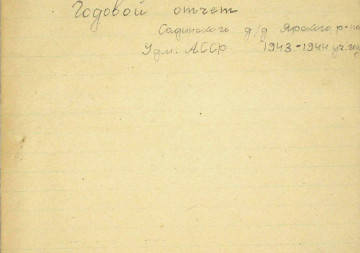 Годовой отчет
Садинского д/д Ярского р-на
Удм. АССР 1943-1944 уч. год